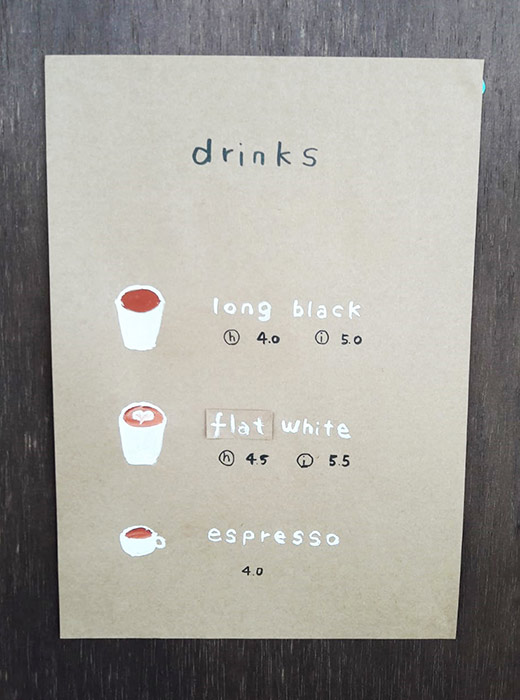 drinks
long black
ⓗ 4.0 ⓘ 5.0
flat white
ⓗ 4.5 ⓘ 5.5
espresso
4.0